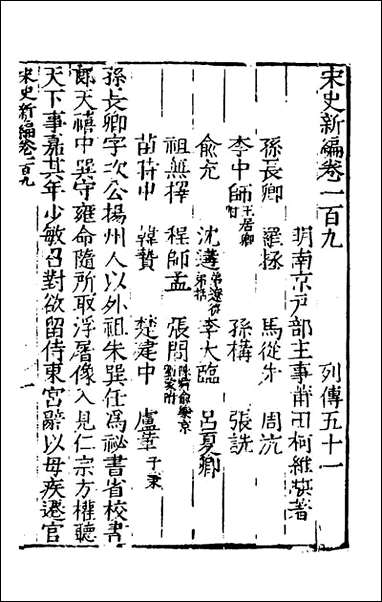 宋史新編卷一百九　列傳五十一
明南京戶部主事莆田柯維騏著
孫長卿　羅拯　馬從先　周沆
李中師　王居卿　孫構　張詵
俞充　沈遘　弟遼　從弟括　李大臨　呂夏卿
祖無擇　程師孟　張問　陳舜俞　樂京　劉蒙附
苗時中　韓贄　楚建中　盧革　子秉
孫長卿字次公揚州人以外祖朱巽任爲祕書省校書
郎天禧中巽守雍命隨所取浮屠像入見仁宗方權聽
天下事嘉其年少敏召對欲留侍東宮辭以母疾遷官
宋史新編卷一百九　一